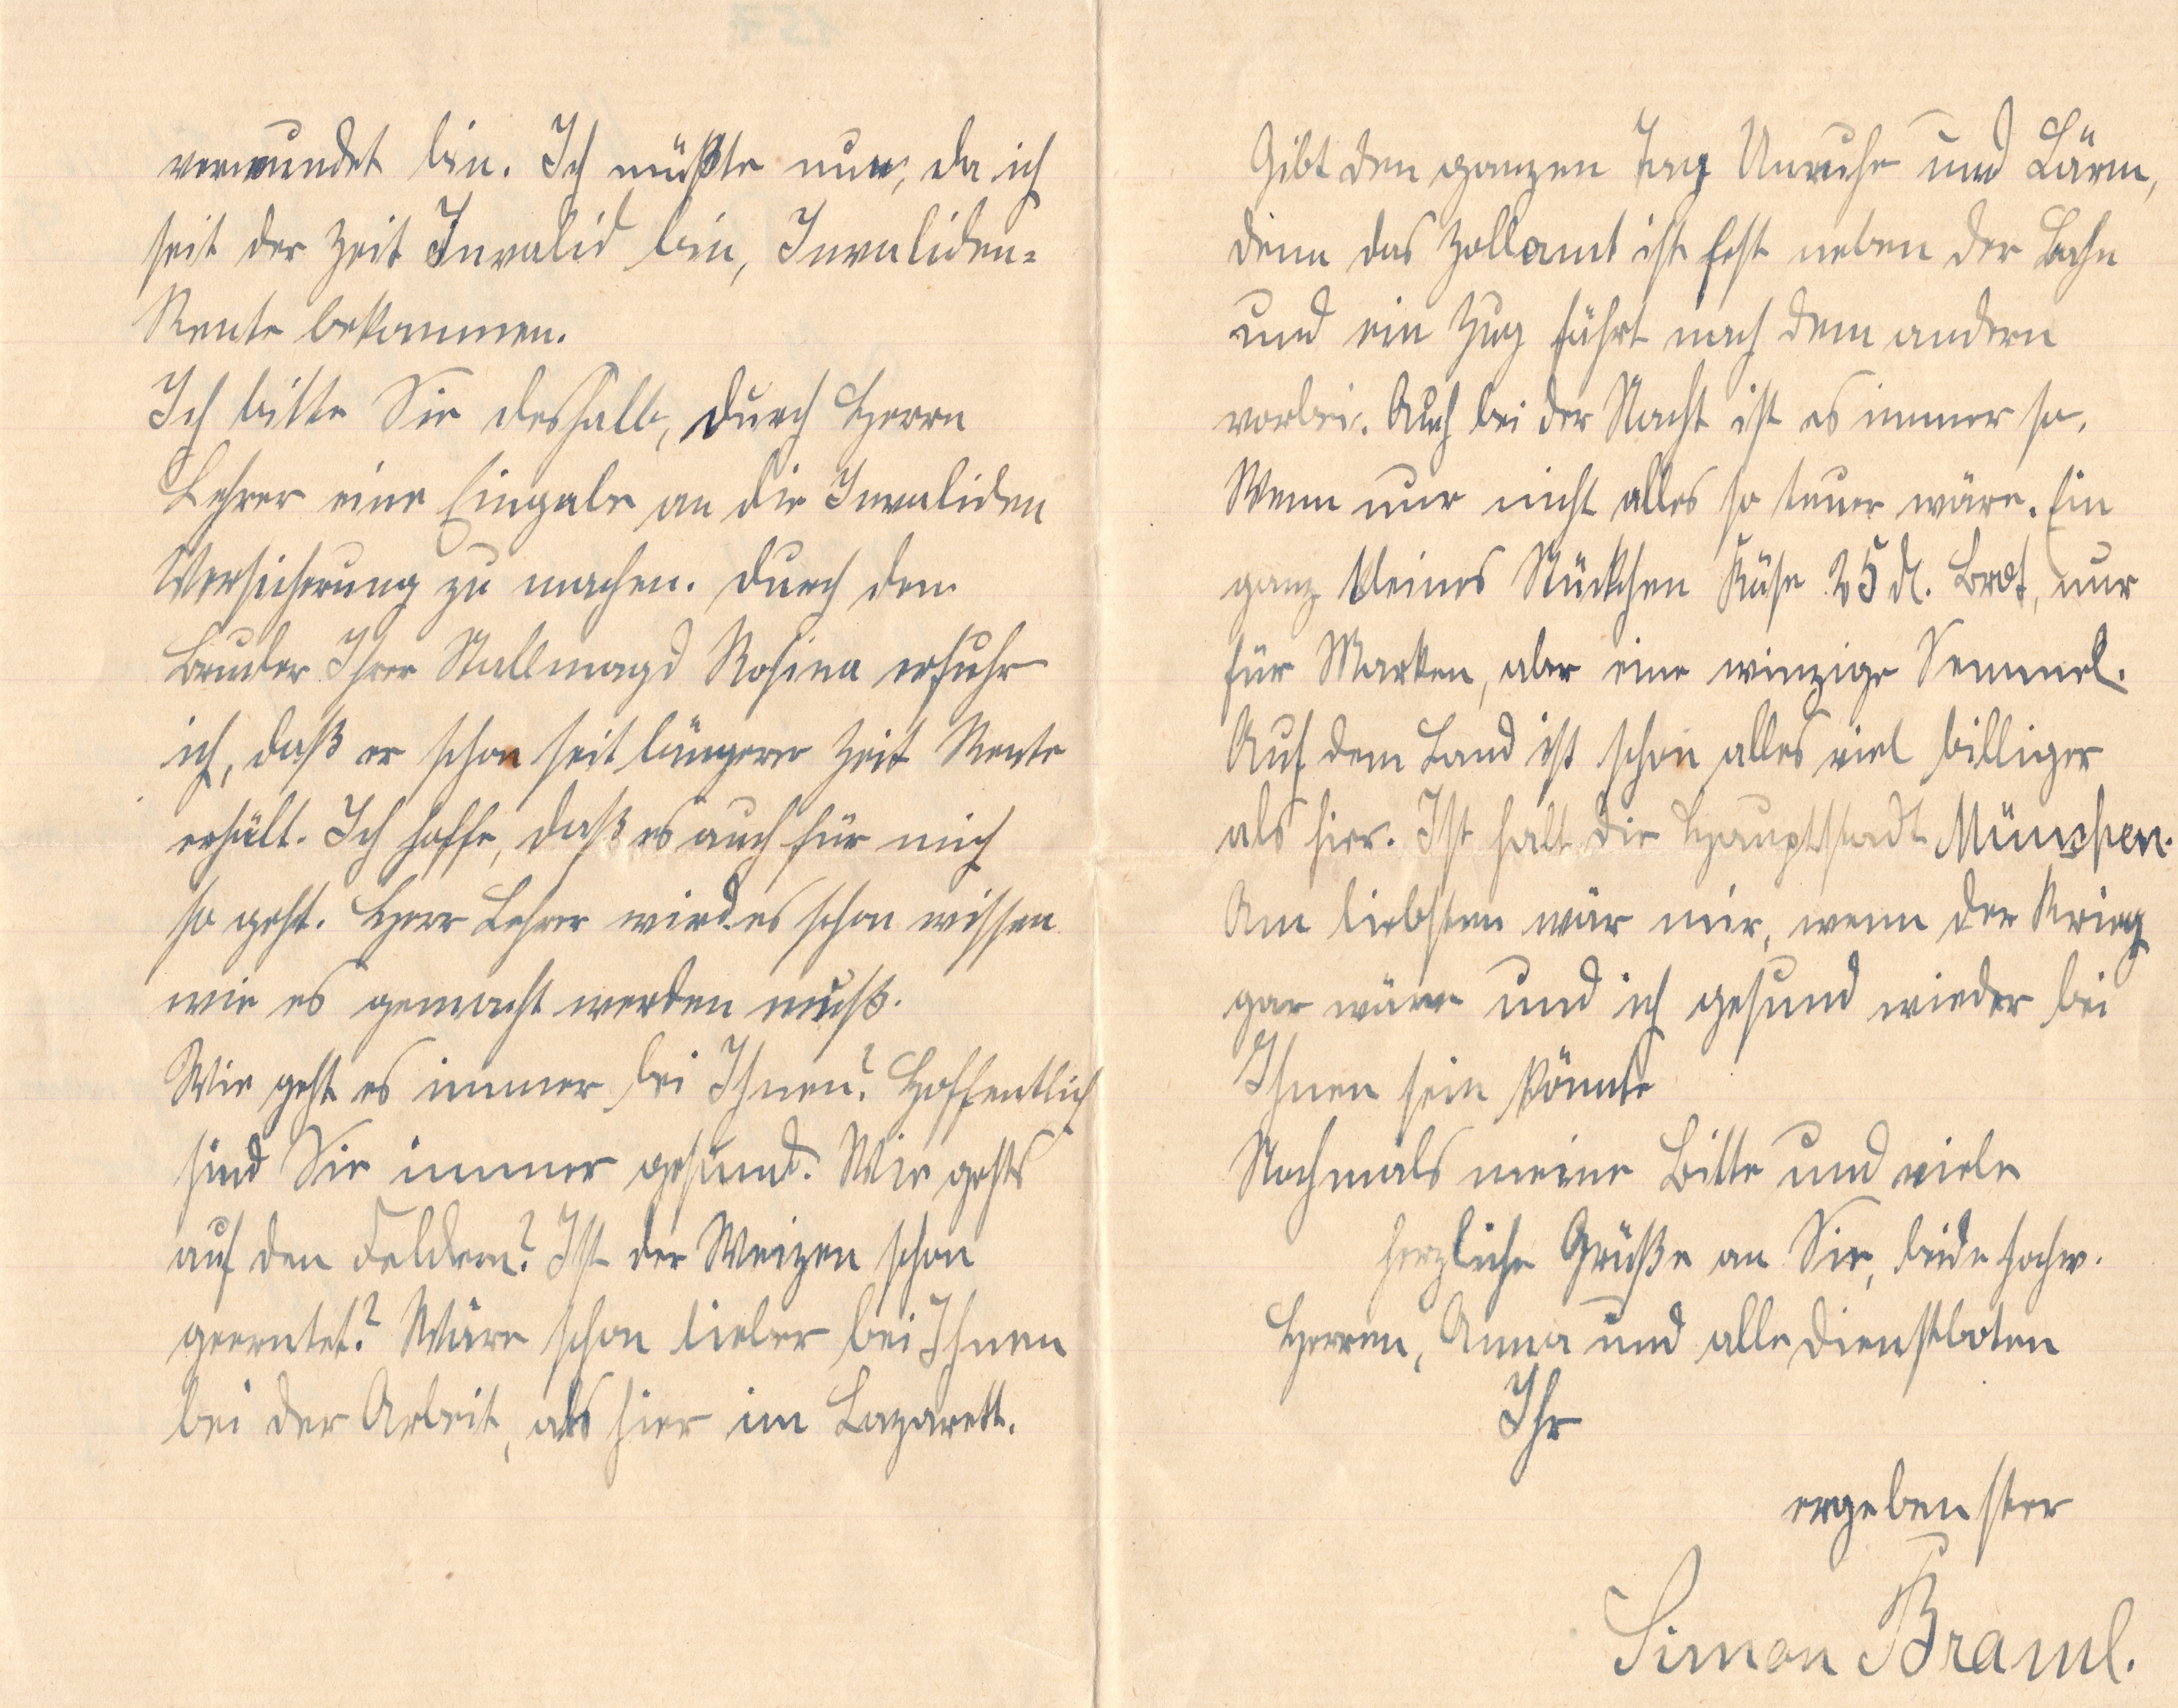 verwundet bin. Ich müßte nun, da ich
seit der Zeit Invalid bin, Invaliden=
Rente bekommen.
Ich bitte Sie deshalb, durch Herrn
Lehrer eine Eingabe an die Invaliden
Versicherung zu machen. Durch den
Bruder Ihrer Stallmagd Rosina erfuhr
ich, daß er schon seit längerer Zeit Rente
erhält. Ich hoffe, daß es auch für mich
so geht. Herr Lehrer wird es schon wissen
wie es gemacht werden muß.
Wie geht es immer bei Ihnen? Hoffentlich
sind Sie immer gesund. Wie gehts
auf den Feldern? Ist der Weizen schon
geerntet? Wäre schon lieber bei Ihnen
bei der Arbeit, als hier im Lazarett.
Gibt den ganzen Tag Unruhe und Lärm,
denn das Zollamt ist fest neben der Bahn
und ein Zug fährt nach dem andern
vorbei. Auch bei der Nacht ist es immer so.
Wenn nur nicht alles so teuer wäre. Ein
ganz kleines Stückchen Käse 25 ₰. Brot, nur
für Marken, aber eine winzige Semmel.
Auf dem Land ist schon alles viel billiger
als hier. Ist halt die Hauptstadt München.
Am liebsten wär mir, wenn der Krieg
gar wäre und ich gesund wieder bei
Ihnen sein könnte
Nochmals meine Bitte und viele
herzliche Grüße an Sie, beide hochw.
Herren, Anna und alle Dienstboten
Ihr
ergebenster
Simon Braml.